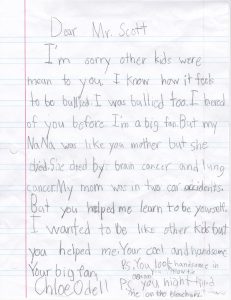 Dear Mr. Scott
I'm sorry other kids were
mean to you. I know how it feels
to be bullied. I was bullied too. I heared
of you before I'm a big fan. But my
NaNa was like you mother but she
died. She died by: brain cancer and lung
cancer. My mom was in two car accidents.
But you helped me learn to be yourself.
I wanted to be like other Kids but
you helped me. Your cool and handsome
Your big fan,
Chloe Odell
P.S. You look handsome in
P.S. you might find
me on the